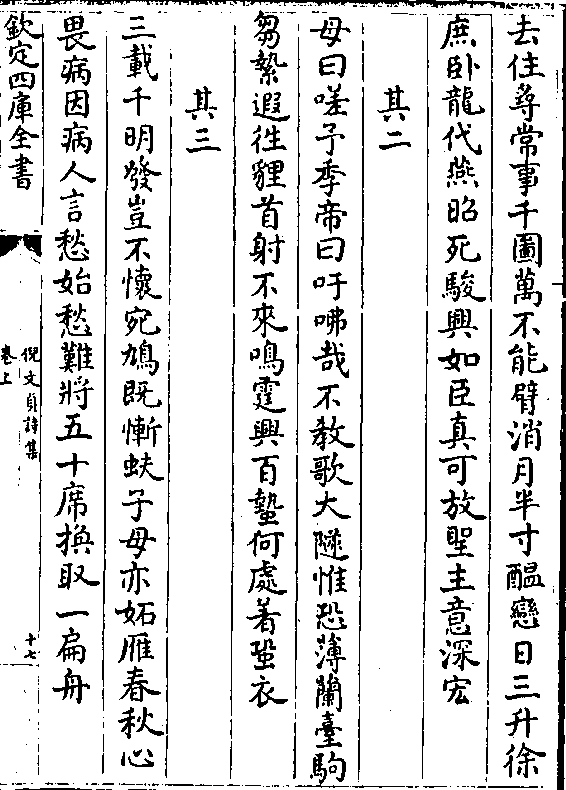 去住尋常事千圖萬不能臂消月半寸醖戀日三升徐
庶卧龍代燕昭死駿興如臣真可放聖主意深宏
其二
母曰嗟予季帝曰吁咈哉不教歌大隧惟恐薄蘭臺駒
芻縶遐徃貍首射不來鳴霆興百蟄何處着蛩衣
其三
三載千明發豈不懷宛鳩既慚蚨子母亦妬雁春秋心
畏病因病人言愁始愁難將五十席換取一扁舟
欽定四庫全書
倪文貞詩集
卷上
十七